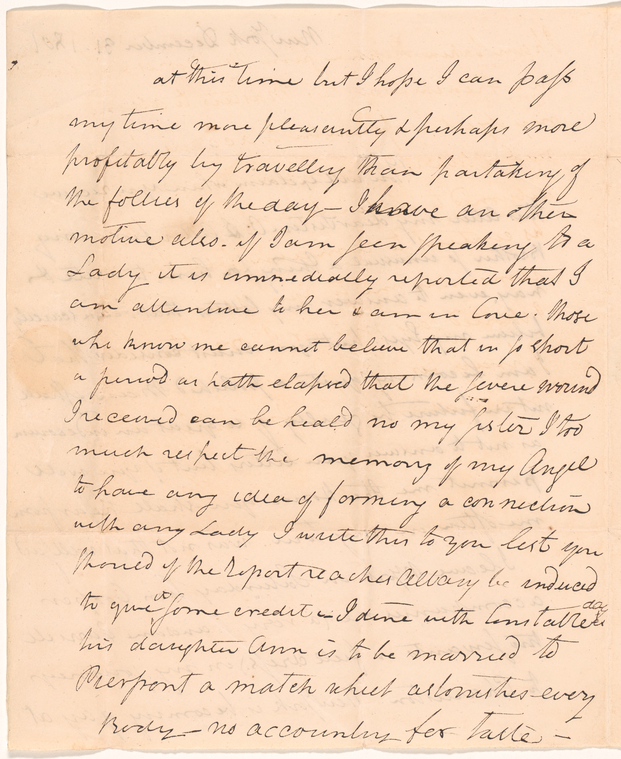 at this time but I hope I can pass
my time more pleasantly & perhaps more
profitably by travelling than partaking of
the follies of the day – I have an other
motive also. if I am seen speaking to a
Lady it is immediedly reported that I
am attentive to her & am in Love. those
who know me cannot believe that in so short
a period as hath elapsed that the severe wound
I received can be heald no my sister I too
much respect the memory of my Angel
to have any idea of forming a connection
with any Lady I write this to you lest you
should if the report reaches Albany be induced
to give some credit – I dine with Constable
his daughter Ann is to be married to
Pierpont a match which astonishes every
Body – no accounting for taste –